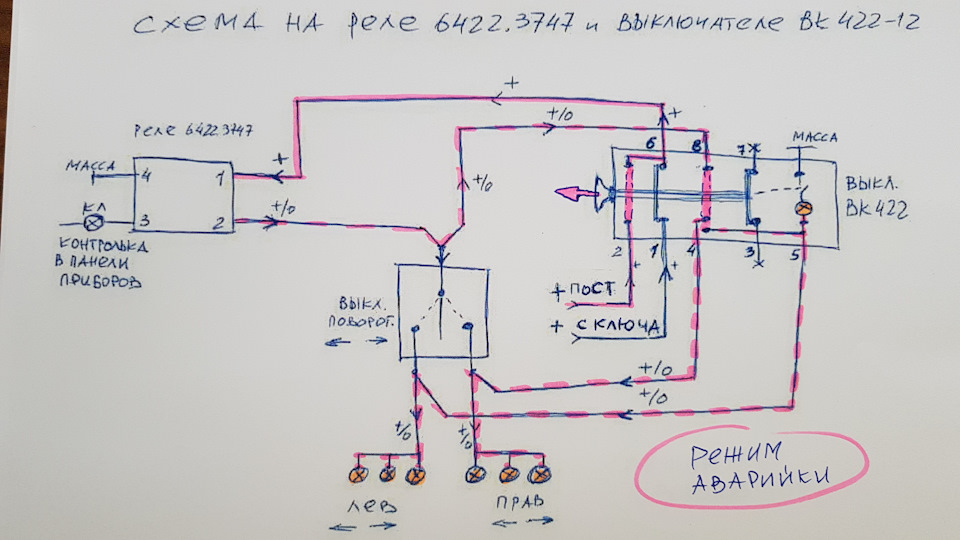 СХЕМА НА РЕЛЕ 6422.3747 И ВЫКЛЮЧАТЕЛЕ ВК 422-12
+
+/0
+
РЕЛЕ 6422.3747
6 8 7
МАССА
МАССА
4 1
+
+/0
КЛ
3 2
+/0
ВЫКЛ.
ВК 422
КОНТРОЛЬКА
В ПАНЕЛИ
ПРИБОРОВ
2 1 4 3 5
+ +
+ ПОСТ
ВЫКЛ.
ПОВОРОТ.
+ С КЛЮЧА
+/0
+/0
+/0 +/0
РЕЖИМ
АВАРИЙКИ
ЛЕВ ПРАВ